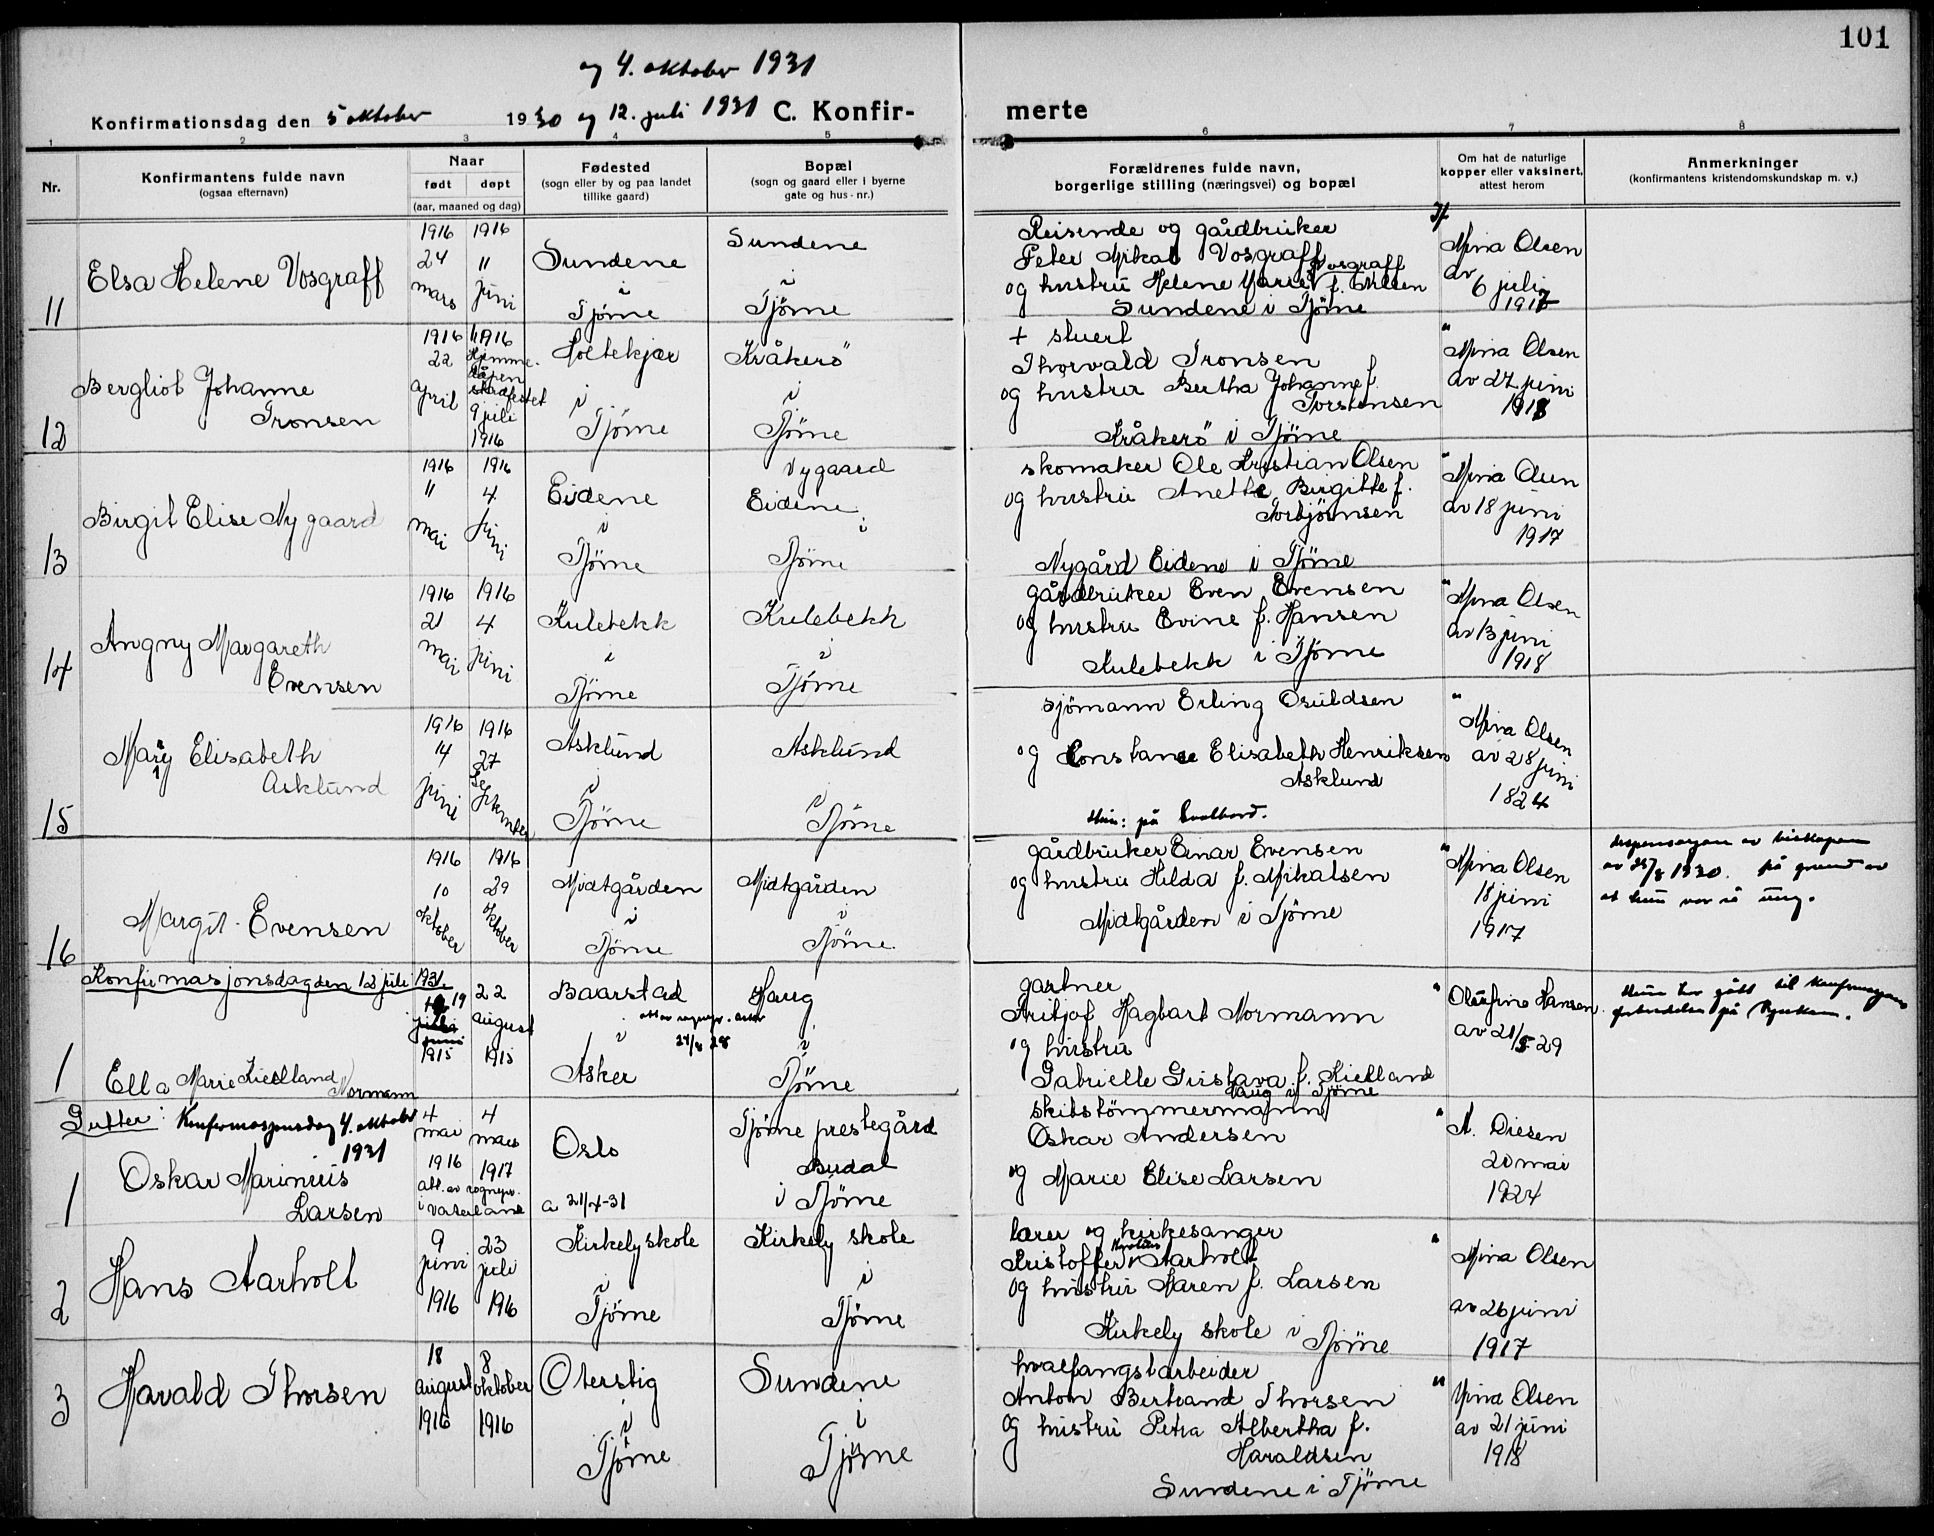 101
og 4. oktober 1931
Konfirmationsdag den 5 oktober 1930 og 12. juli 1931 C. Konfir-merte
1 2 3 4 5 6 7 8
Nr.
Konfirmantens fulde navn
(ogsaa efternavn)
Naar
født døpt
(aar, maaned og dag)
Fødested
(sogn eller by og paa landet
tillike gaard)
Bopæl
(sogn og gaard eller i byerne
gate og hus-nr.)
Forældrenes fulde navn,
borgerlige stilling (næringsvei) og bopæl
Om hat de naturlige
kopper eller vaksinert,
attest herom
Anmerkninger
(konfirmantens kristendomskundskap m. v.)
11
Elsa Helene Vosgraff
1916
24
mars
1916
11
juni
Sundene
i
Tjöme
Sundene
i
Tjöme
Reisende og gårdbruker
Peter Mikal Vosgraff
og hustru Helene Marie Vosgraff f.
Sundene i Tjöme
Mina Olsen
av
6 juli
1917
12
Bergliot Johanne
Tronsen
1916
22
april
1916
Hjemme-
dåpen
stadfestet
9 juli
1916
Holtekjær
i
Tjöme
Kråkerö
i
Tjöme
+ stuert
Thorvald Tronsen
og hustru Bertha Johanne f.
Torstensen
Kråkerö i Tjöme
" Mina Olsen
av 27 juni
1918
13
Birgit Elise Nygaard
1916
11
mai
1916
4
juni
Eidene
i
Tjöme
Nygaard
Eidene
i
Tjöme
skomaker Ole Kristian Olsen
og hustru Anette Birgitte f.
Torbjörnsen
Nygård Eidene i Tjöme
" Mina Olsen
av 18 juni
1917
14
Angny Margareth
Evensen
1916
21
mai
1916
4
juni
Kulebekk
i
Tjöme
Kulebekk
i
Tjöme
gårdbruker Even Evensen
og hustru Evine f. Hansen
Kulebekk i Tjöme
" Mina Olsen
av 13 juni
1918
15
Mary Elisabeth
Asklund
1916
14
juni
1916
27
September
Asklund
i
Tjöme
Asklund
i
Tjöme
sjömann Erling Osuldsen
og Constance Elisabeth Henriksen
Asklund
Hun: på Svalbard.
" Mina Olsen
av 28 juni
1824
16
Margit Evensen
1916
10
oktober
1916
29
oktober
Midtgården
i
Tjöme
Midtgården
i
Tjöme
gårdbruker Einar Evensen
og hustru Hilda f. Mikalsen
Midtgården i Tjöme
" Mina Olsen
18 juni
1917
dispensasjon av biskopen
av 1930. på grund av
at hun var så ung.
Konfirmasjonsdag den 12 juli 1931.
1
Ella Marie Kielland Normann
19
juni
1915
22
august
1915
Baarstad
i
Asker
Haug
i
Tjöme
24/8 28
gartner
Fritjof Hagbart Normann
og hustru
Gabrielle Gustava f. Kielland
Haug i Tjöme
" Olufine Hansen
av 21/5 29
Hun har gått til konfirmasjons
forberedelse på Rjukan.
Gutter: Konfirmasjonsdag 4. oktober
1931
1
Oskar Marinius
Larsen
4
mai
1916
4
mars
1917
att. av sognepr.
i Vaterland
Oslo
a 21/4-31
Tjöme prestegård
Budal
i Tjöme
skibstömmermann
Oskar Andersen
og Marie Elise Larsen
" A. Diesen
20 mai
1924
2
Hans Aarholt
9
juni
1916
23
juli
1916
Kirkely skole
i
Tjöme
Kirkely skole
i
Tjöme
lærer og kirkesanger
Kristoffer Aarholt
og hustru Maren f. Larsen
Kirkely skole i Tjöme
" Mina Olsen
av 26 juni
1917
3
Harald Thorsen
18
august
1916
8
oktober
1916
Oterstig
i
Tjöme
Sundene
i
Tjöme
hvalfangstarbeider
Anton Bertrand Thorsen
og hustru Petra Albertha f.
Haraldsen
Sundene i Tjöme
" Mina Olsen
av 21 juni
1918